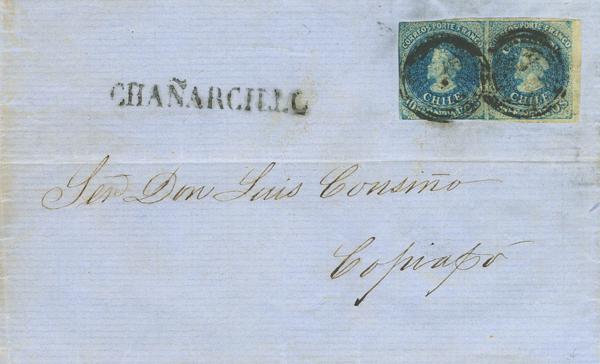 CORREOS PORTE FRANCO CORREOS PORTE FRANCO
CHILE CHILE
CHAÑARCILLO
Señ Don Luis Consiño
Copiapó